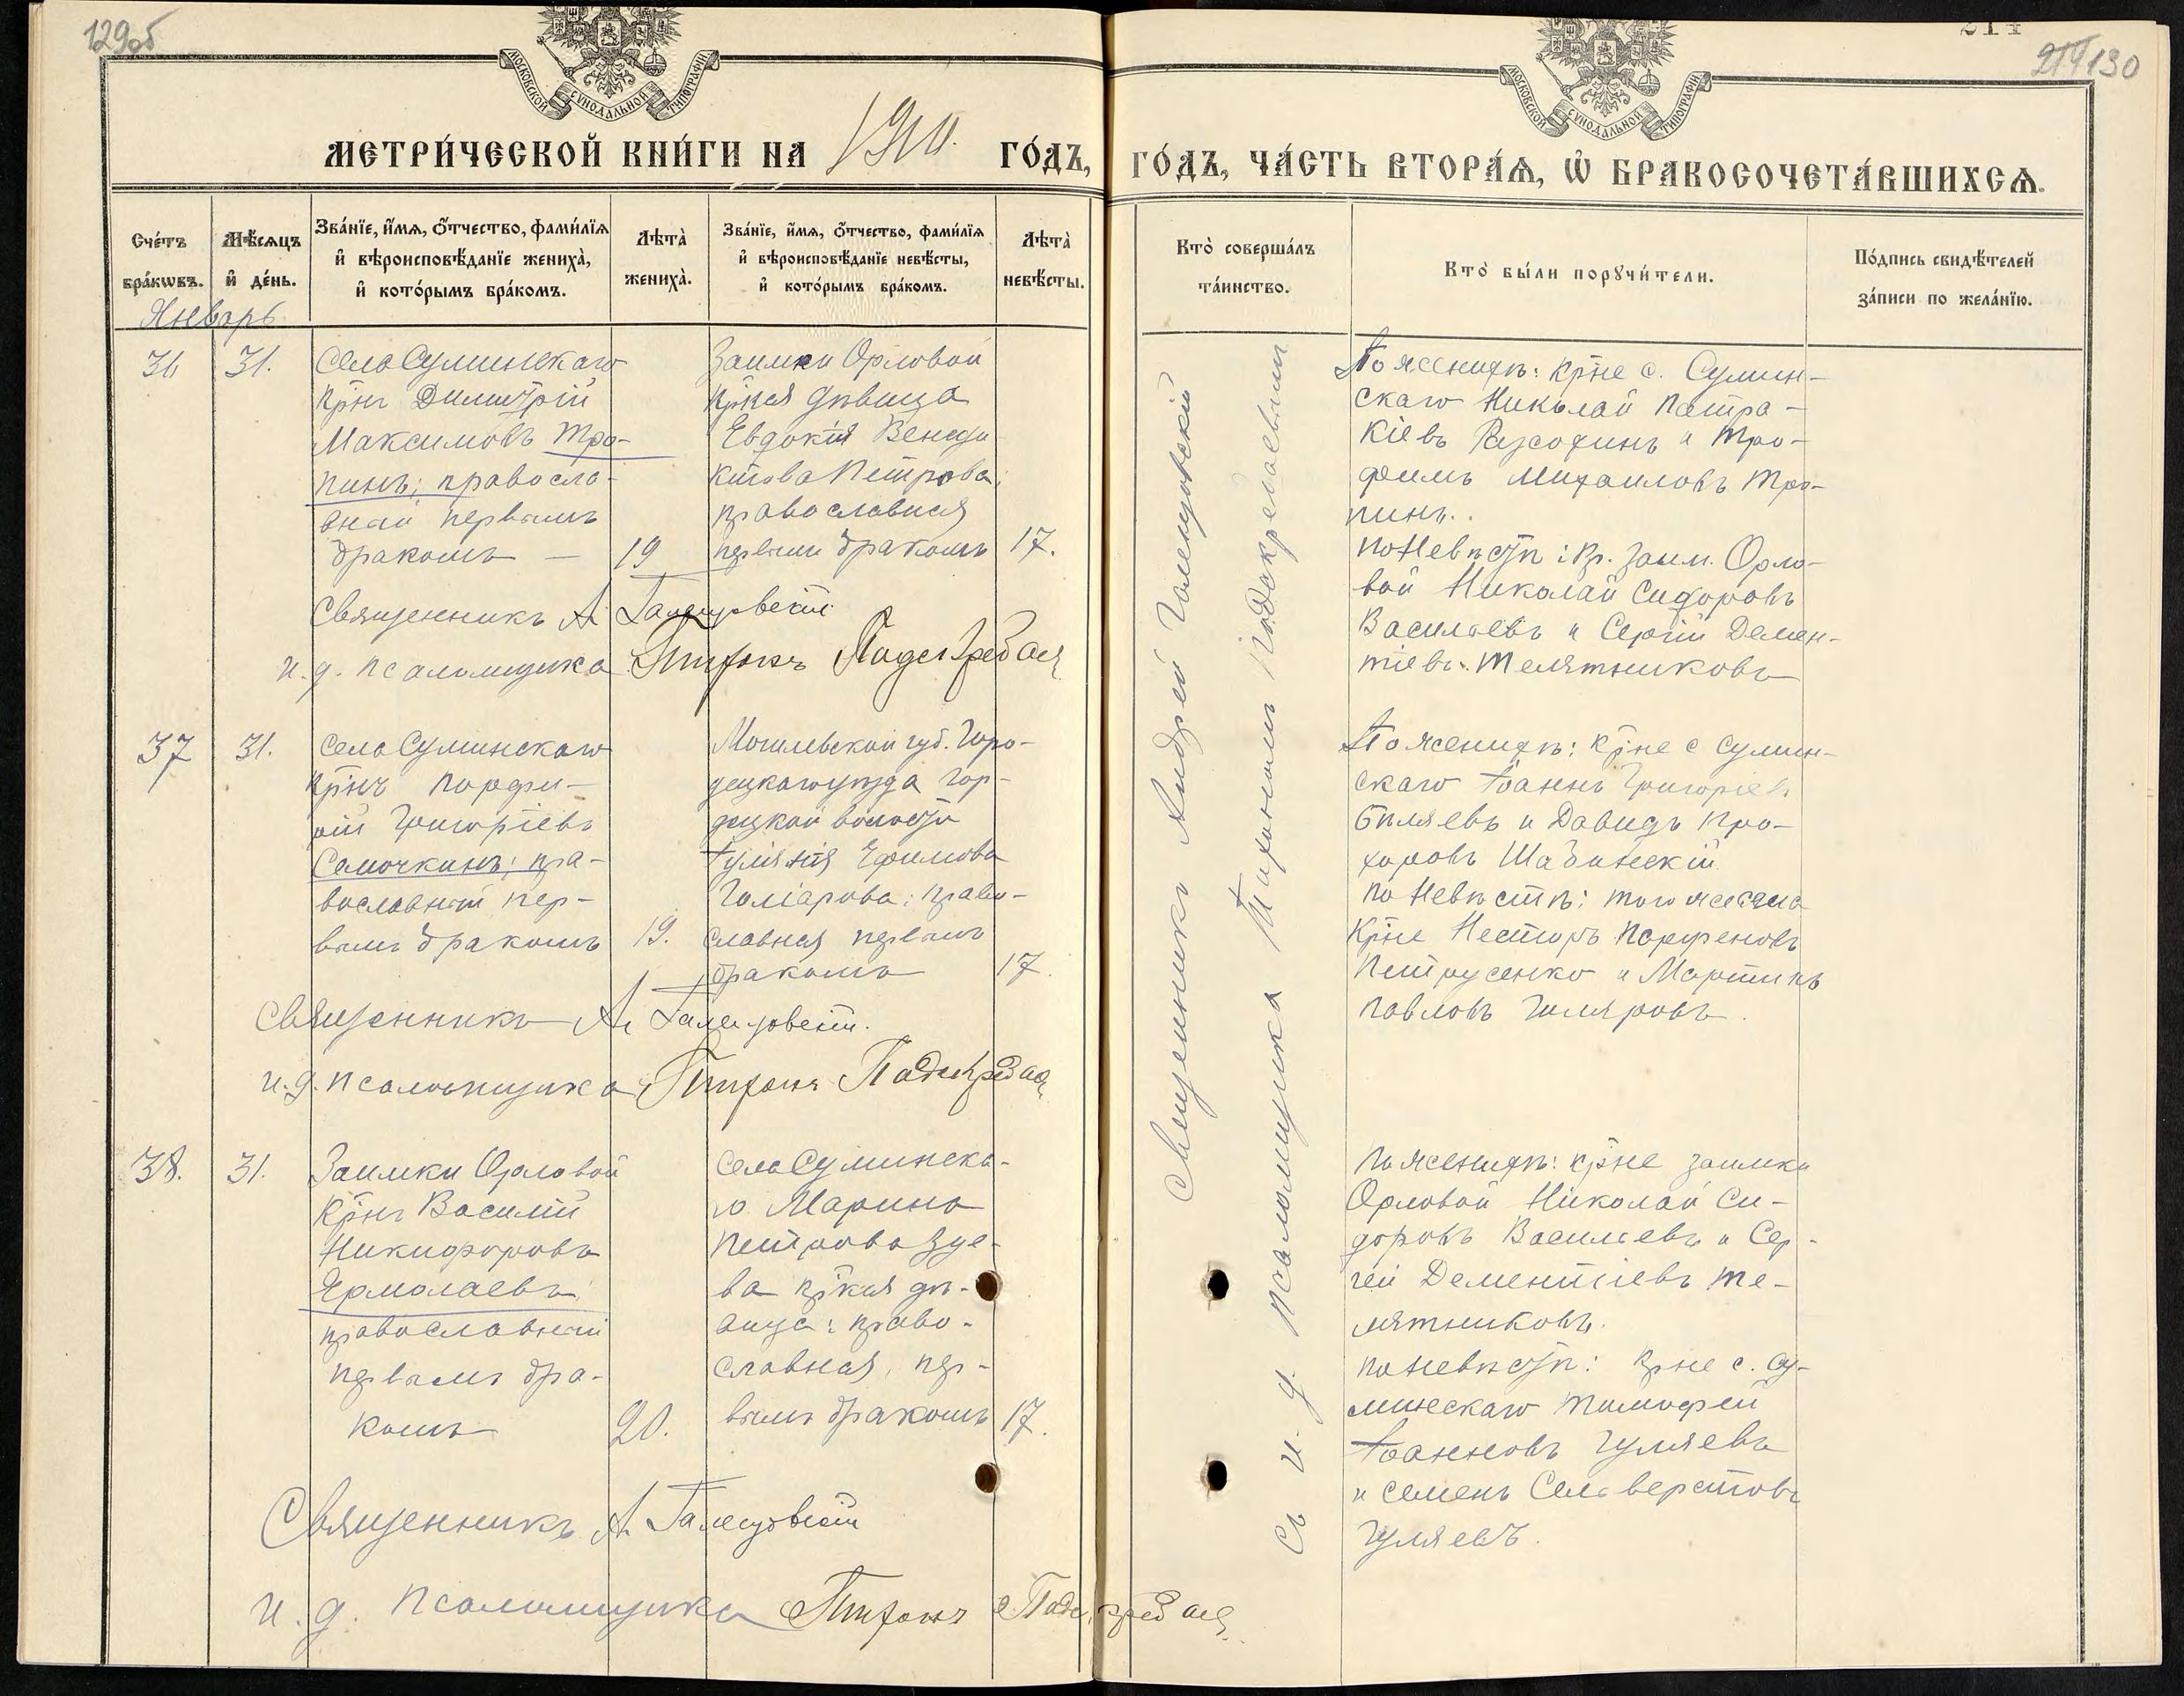 129об
МОСКОВСКОЙ СѴНОДАЛЬНОЙ ТИПОГРАФІИ
МЕТРИ́ЧЕСКОЙ КНИ́ГИ НА 1910. ГО́ДЪ,
Сче́тъ бра́кѡвъ.
Мѣ́сяцъ и҆ де́нь.
Зва́нїе, и҆́мѧ, ѻ҆́тчество, фами́лїѧ
и҆ вѣроисповѣ́данїе женихà,
и҆ кото́рымъ бра́комъ.
Лѣтà
женихà.
Зва́нїе, и҆́мѧ, ѻ҆́тчество, фами́лїѧ
и҆ вѣроисповѣ́данїе невѣ́сты,
и҆ кото́рымъ бра́комъ.
Лѣтà
невѣ́сты.
Январь
31.
Села Суминскаго
крнъ Димитрій
Максимовъ Тро-
пинъ; правосла-
вный первымъ
бракомъ —
19
Заимки Орловой
кр҃ная дѣвица
Евдокія Венеди
ктова Петрова;
православная
первымъ бракомъ
17.
Священникъ А.
и. д. псаломщика Тихонъ
37
31.
Села Суминскаго
крнъ Порфи-
рій Григоріевъ
Самочкинъ; пра-
вославный пер-
вымъ бракомъ
19.
Могилевской губ. Горо-
децкаго уѣзда Гор-
децкой волости
Іулянія Ефимова
правo-
славная первымъ
бракомъ
17.
Священникъ А.
и. д. псаломщика Тихонъ
38.
31.
Заимки Орловой
Крнъ Василій
Никифоровъ
Ермолаевъ;
православный
первымъ бра-
комъ
20.
Села Суминска-
го Марина
Петрова Зуе-
ва кр҃ная дѣ-
вица; право-
славная, пер-
вымъ бракомъ
17.
Священникъ А.
и. д. псаломщика Тихонъ
214
214 130
МОСКОВСКОЙ СѴНОДАЛЬНОЙ ТИПОГРАФІИ
ГО́ДЪ, ЧА́СТЬ ВТОРА́Ѧ, Ѽ БРАКОСОЧЕТА́ВШИХСѦ.
Кто̀ соверша́лъ
та́инство.
Кто̀ бы́ли порꙋчи́тели.
По́дпись свидѣ́телей
за́писи по жела́нїю.
Священникъ Андрей
Съ и. д. псаломщика Тихономъ
По женихѣ: крне с. Сумин-
скаго Николай Патра-
кіевъ и Тро-
фимъ Михаиловъ Тро-
пинъ.
По невѣстѣ: кр. заим. Орло-
вой Николай Сидоровъ
Васильевъ и Сергій Демен-
тіевъ Телятниковъ
По женихѣ: крне с Сумин-
скаго Іоаннъ Григоріевъ
Бѣляевъ и Давидъ Про-
хоровъ
По невѣстѣ: того же села
крне Несторъ Парфеновъ
Петрусенко и Мартинъ
Павловъ Гиляровъ.
По женихѣ: крне заимки
Орловой Николай Си-
доровъ Василевъ и Сер-
гей Дементіевъ Те-
лятниковъ.
По невѣстѣ: крне с. Су-
минскаго Тимофей
Іоанновъ Гуляевъ
и Семенъ Селеверстовъ
Гуляевъ.